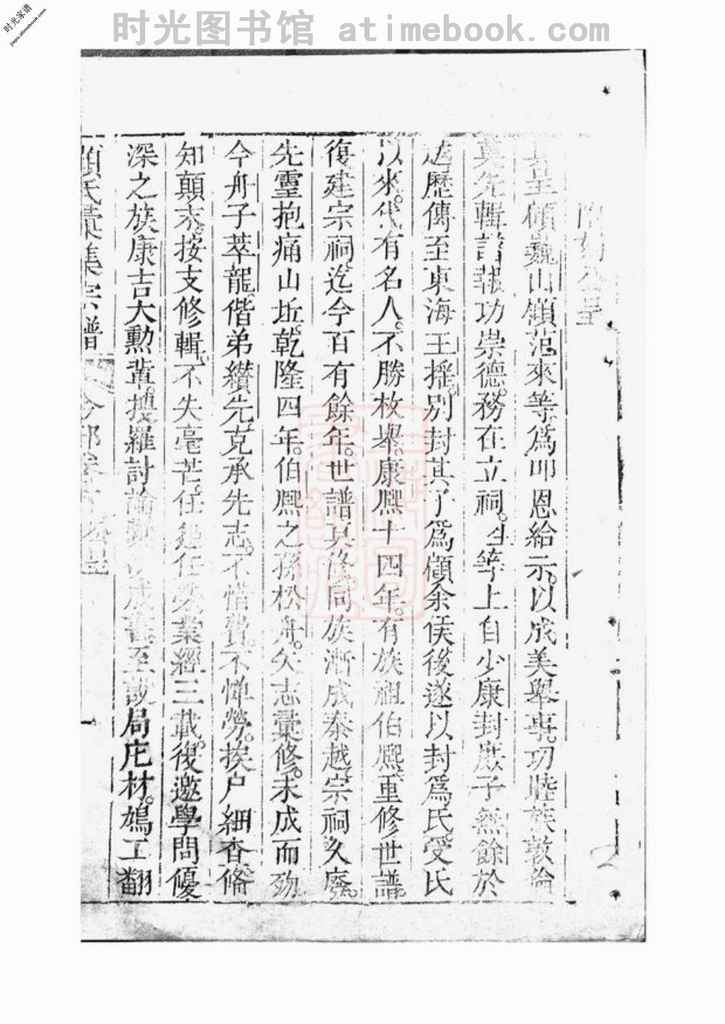 时光图书馆 atimebook.com
时光家谱
具呈顧巍山領范來等爲叩恩給示以成美舉事。切睦族敦倫
莫先輯譜報功崇德務在立祠。等上自少康封庶子無餘於
越歷傳至東海王搖別封其子爲顧余侯後遂以封爲氏受氏
以來。代有名人。不勝枚舉。康熙十四年。有族祖伯熙。重修世譜。
復建宗祠。迄今百有餘年。世譜其後同族漸成秦越。宗祠久廢。
先靈抱痛山坵。乾隆四年。伯熙之孫松舟。矢志彙修。未成而歿。
今舟子萃龍。偕弟纘先。克承先志。不惜費。不憚勞。挨户細查。備
知顛末。按支修輯。不失毫芒。任任業經三載。復邀學問優
深之族康吉大勲輩。搜羅討論成書至設局庀材。鳩工翻
顧氏彙集宗譜